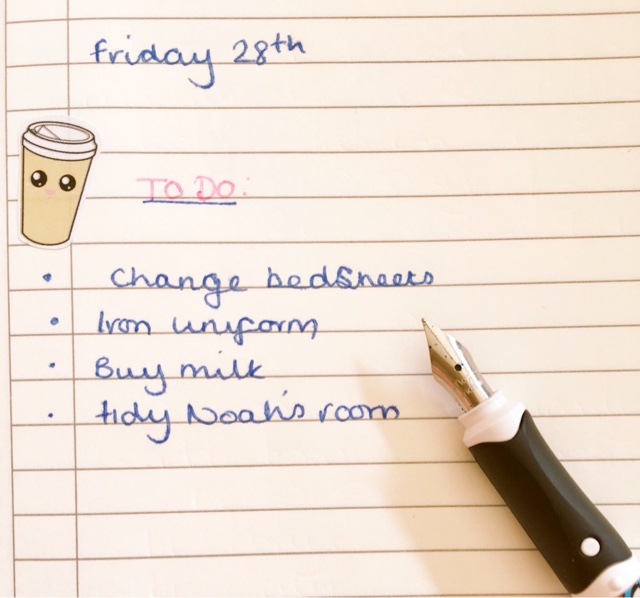 friday 28th
TO DO:
• Change bedsheets
• Iron uniform
• Buy milk
• tidy Noah's room